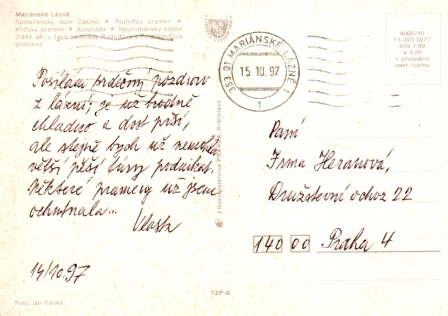 Mariánské Lázně
Společenský dům Casino • Rudolfův pramen •
Křížový pramen • Kolonáda • Novorománský kostel
(1844-48) • část kolonády Rudolfova a Ferdinandova
pramene
Posílám srdečný pozdrav
z lázní; je už hrodně
chladno a dost prší,
ale stejně bych už nemohla
větší pěší túry podnikat.
Některé prameny už jsem
ochutnala...
Vlasta
14/10.97
Foto Jan Kaňka
353 01 MARIÁNSKÉ LÁZNĚ 1
15.10.97
1
TZP-B
4005/40
11-323 0277
Kčs 1,80
a 0,20
v prospěch
cest. ruchu
Paní
Irma Heranová,
Družstevní ochoz 22
140 00 Praha 4